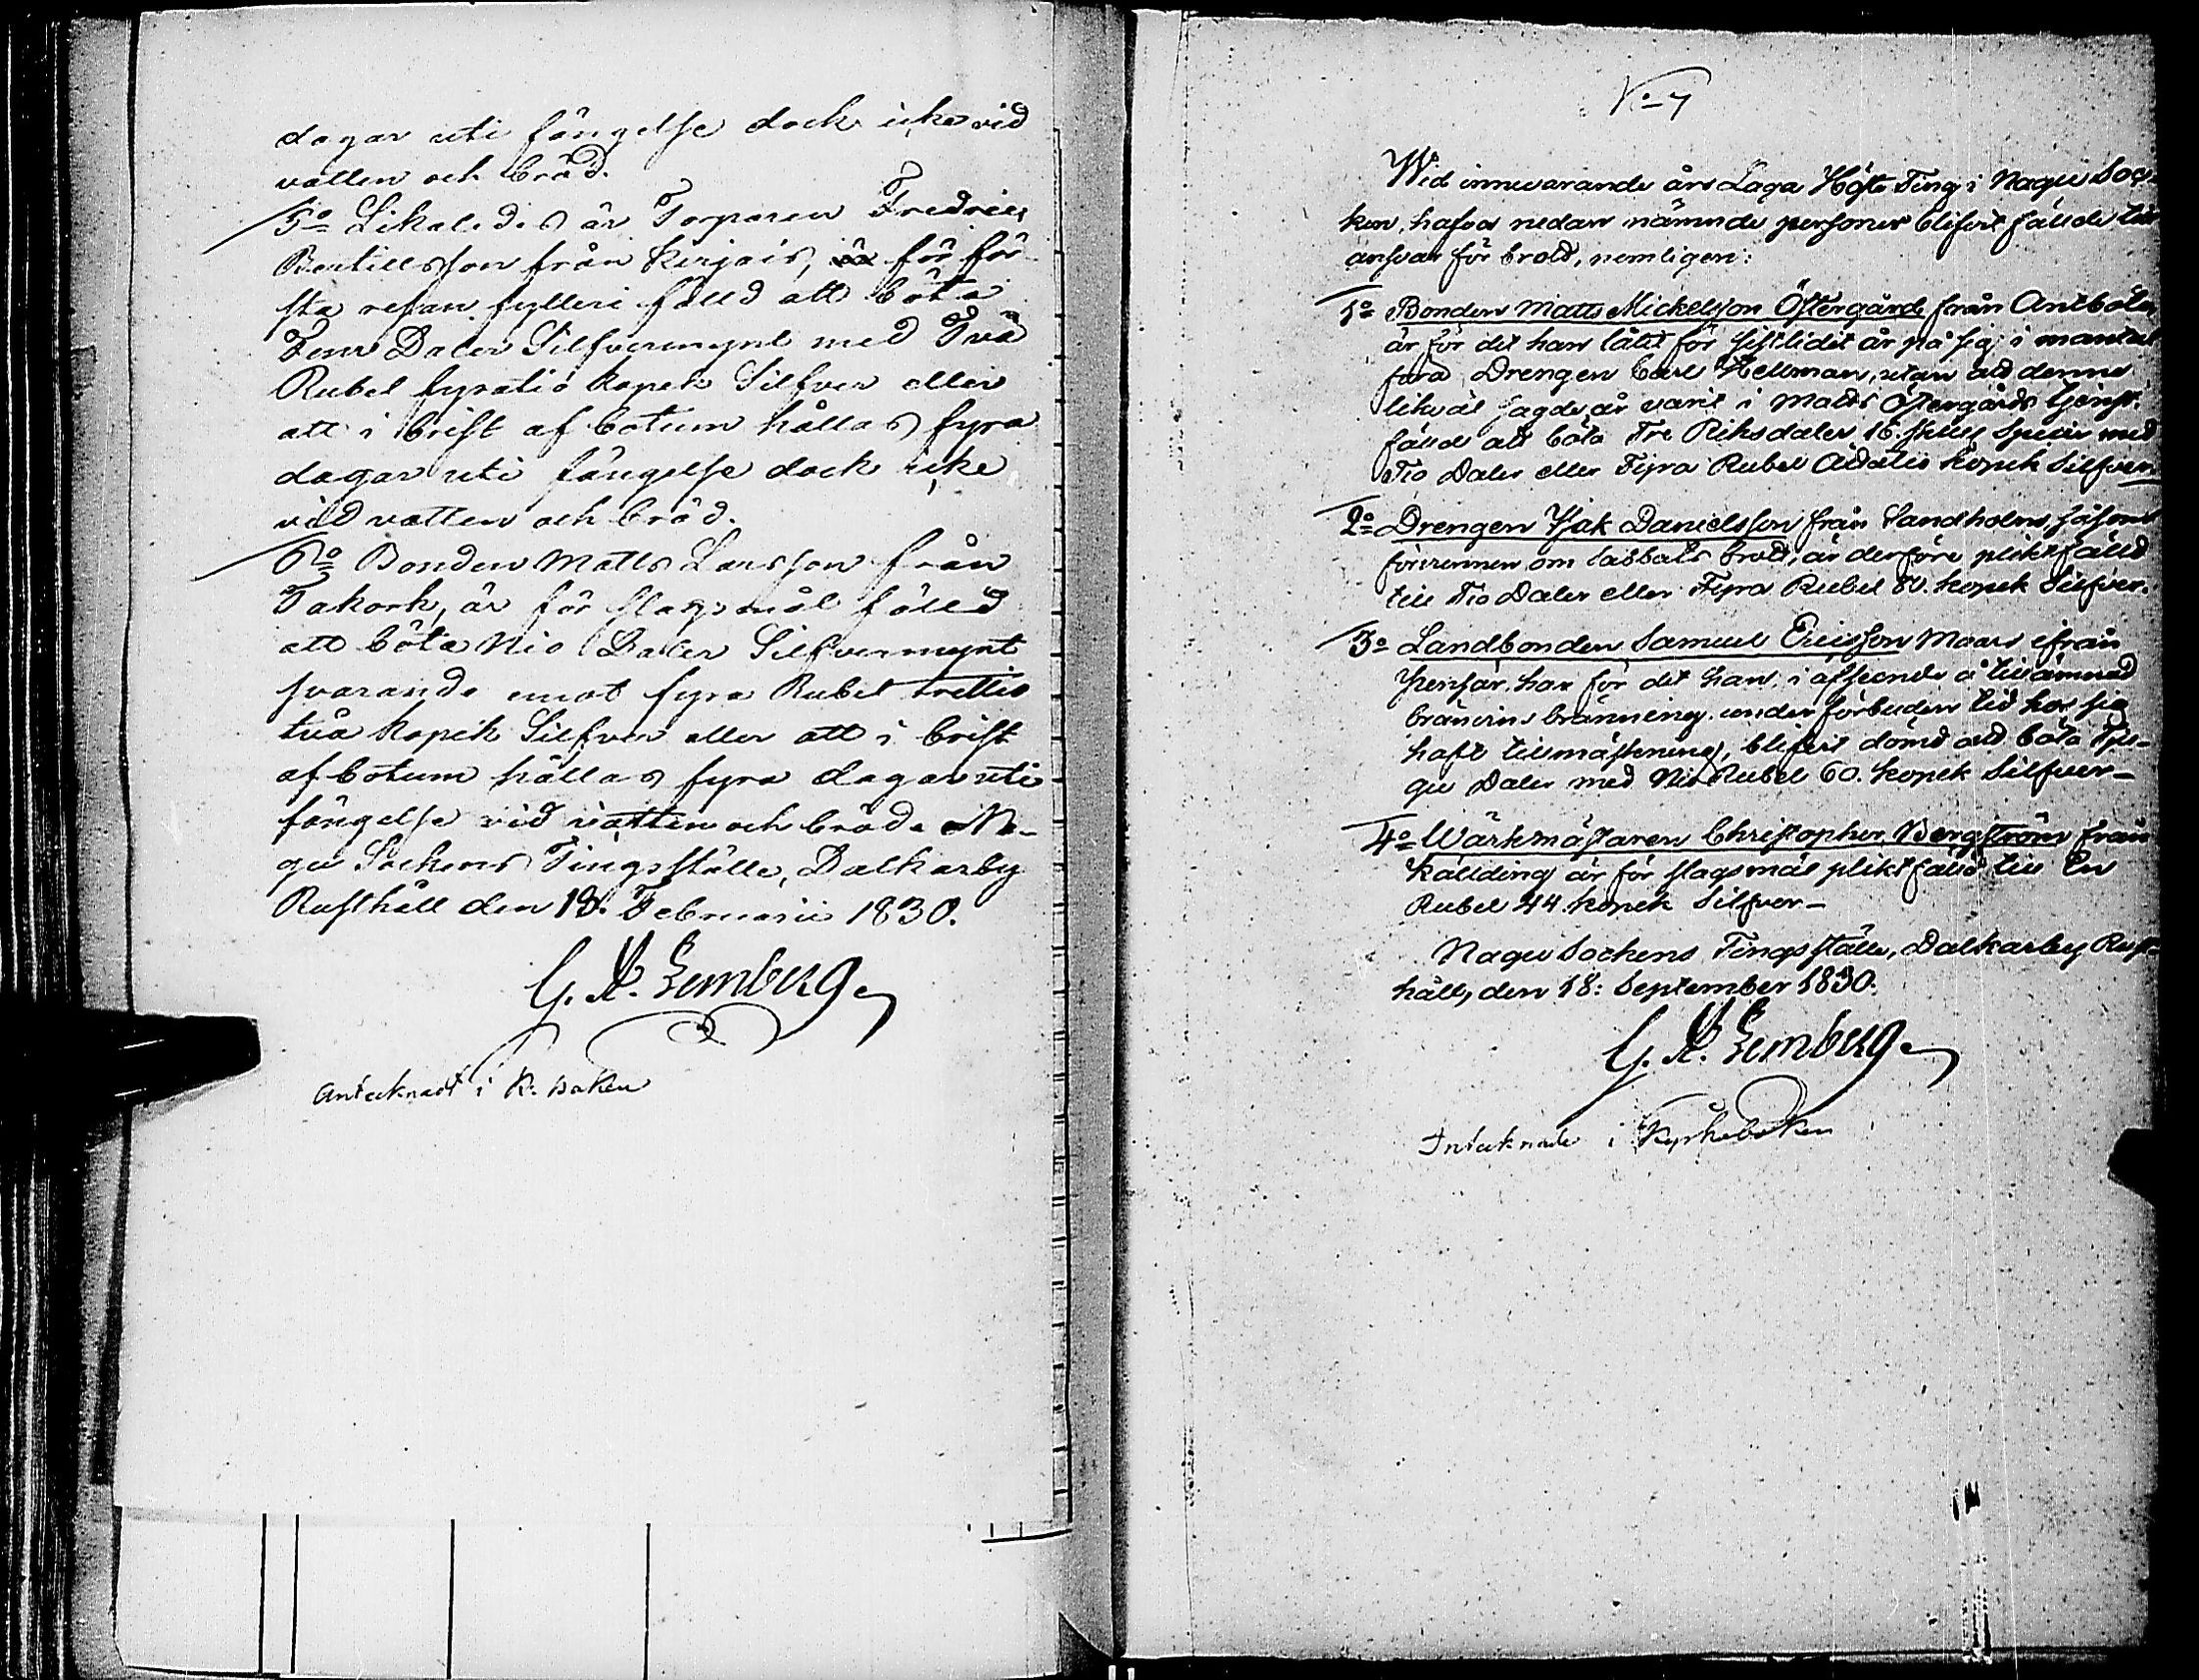 dagar uti fängelse dock icke vid
vatten och bröd.
5o Likaledes är Torparen Fredric
Bertillsson från Kirjais, är för för
sta resan fylleri fälld att böta
Fem Daler Silfvermynt med Två
Rubel fyratio kopek Silfver eller
att i brist af botum hållas fyra
dagar uti fängelse dock icke
vid vatten och bröd.
6o Bonden Matts Larsson från
Takork, är för slagsmål fälld
att böta Nio Daler Silfvermynt
svarande emot fyra Rubel trettio
två kopek Silfver eller att i brist
af botum hållas fyra dagar uti
fängelse vid vatten och bröd. Na-
gu Sockens Tingsställe, Dalkarby
Rusthåll den 18. Februarii 1830.
G. A. Lemberg
Antecknadt i K. boken
No 7
Wid innevarande års Laga Höste Ting i Nagu Soc-
ken, hafva nedan nämnde personer blifvit fällde till
ansvar för brott, nemligen:
1o Bonden Matts Mickelsson Östergård från Antböle,
är för det han låtit för sistlidet år på sig i mantal
föra Drengen Carl Hellman, utan att denne
likväl sagde år varit i Matts Östergårds tjenst,
fälld att böta Tre Riksdaler 16. skill Specie med
Tio Daler eller Fyra Rubel Åttatio kopek Silfver.
2o Drengen Isak Danielsson från Sandholm, såsom
förvunnen om sabbats brott, är derföre pliktfälld
till Tio Daler eller Fyra Rubel 80. kopek Silfver.
3o Landbonden Samuel Ericsson Maars ifrån
Spensär, har för det han, i afseende å tillämnad
bränvins bränning, under förbuden tid hos sig
haft tillmäskning, blifvit dömd att böta Tju-
gu Daler med Nio Rubel 60. kopek Silfver -
4o Wärkmästaren Christopher Bergström från
Källdinge är för slagsmål pliktfälld till En
Rubel 44. kopek Silfver -
Nagu Sockens Tingsställe, Dalkarby Rust-
håll, den 18: September 1830.
G. A. Lemberg
Intecknade i Kyrkoboken